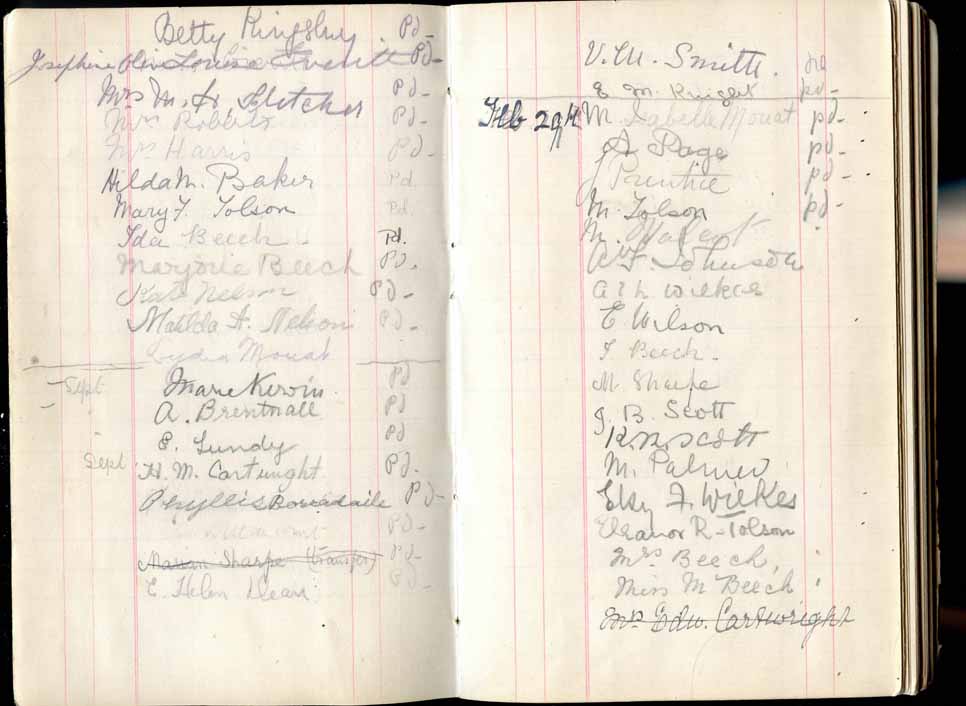 Betty Kingsbury Pd-
Josephine Olive Louisa Pd-
Mrs M. H. Fletcher Pd-
Mrs Roberts Pd-
Mrs Harris Pd-
Hilda M. Baker Pd.
Mary F. Tolson Pd.
Ida Beech Pd.
Marjorie Beech Pd.
Kate Nelson Pd-
Matilda A. Nelson Pd-
Lydia Mouat
Sept Marie Kerwin Pd
A. Brentnall Pd
E. Lundy Pd
Sept H. M. Cartwright Pd.
Phyllis Borradaile Pd-
Pd-
Marian Sharpe (transfer) Pd-
E. Helen Dean
V. M. Smith.
E. M. Knight pd-
Feb 29th M. Isabelle Mouat pd-
A Page pd-
J Prentice pd-
M. Tolson pd-
M.
A. F. Johnson
A E L Wilkes
E Wilson
I Beech.
M. Sharpe
J. B. Scott
K. N. Scott
M. Palmer
Elsy F. Wilkes
Eleanor R-Tolson
Mrs Beech,
Miss M Beech
Mrs Edw. Cartwright